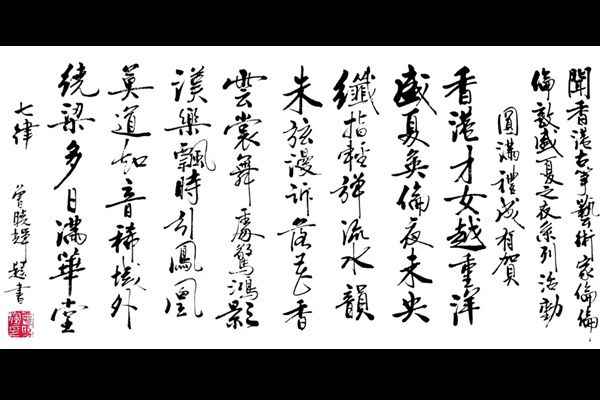 聞香港古箏藝術家倫倫
倫敦盛夏之夜系列活動
圓滿禮成有賀
香港才女越重洋
盛夏英倫夜未央
纖指輕彈流水韻
朱弦漫訴落花香
雲裳舞處驚鴻影
漢樂飄時引鳳凰
莫道知音稀域外
繞梁多日滿華堂
七律 曾曉輝 題書